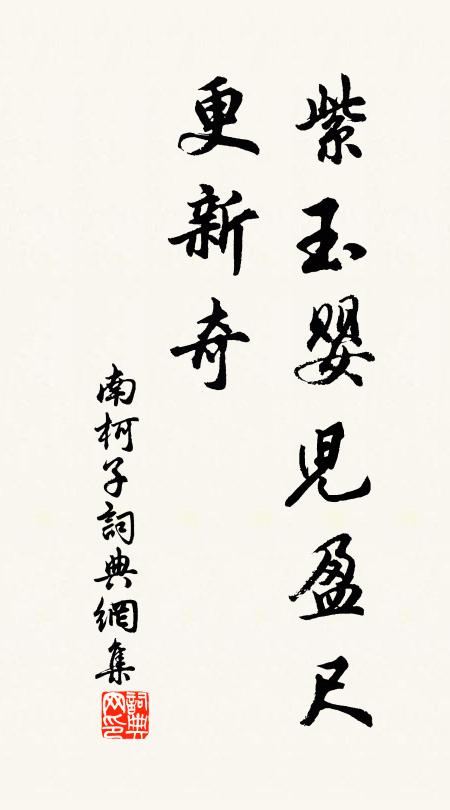 紫玉嬰兒盈尺
更新奇
南柯子詞典網集
詞典网印